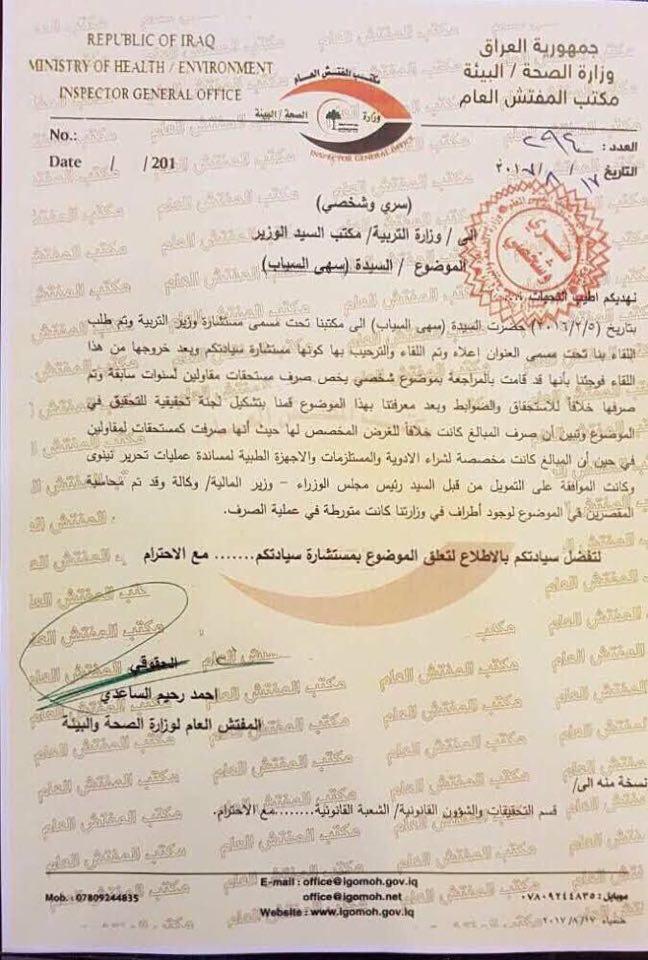 REPUBLIC OF IRAQ
MINISTRY OF HEALTH / ENVIRONMENT
INSPECTOR GENERAL OFFICE
جمهورية العراق
وزارة الصحة / البيئة
مكتب المفتش العام
مكتب المفتش العام
وزارة الصحة / البيئة
INSPECTOR GENERAL OFFICE
No.:
Date / / 201
العدد : ٢٩٤
التاريخ ١٧ / ٨ / ٢٠١٧
سري وشخصي
(سري وشخصي)
الى / وزارة التربية/ مكتب السيد الوزير
الموضوع / السيدة (سهى السياب)
نهديكم اطيب التحيات ...
بتاريخ (٢٠١٦/٢/٥) حضرت السيدة (سهى السياب) الى مكتبنا تحت مسمى مستشارة وزير التربية وتم طلب
اللقاء بنا تحت مسمى العنوان إعلاه وتم اللقاء والترحيب بها كونها مستشارة سيادتكم وبعد خروجها من هذا
اللقاء فوجئنا بأنها قد قامت بالمراجعة بموضوع شخصي يخص صرف مستحقات مقاولين لسنوات سابقة وتم
صرفها خلافاً للاستحقاق والضوابط وبعد معرفتنا بهذا الموضوع قمنا بتشكيل لجنة تحقيقية للتحقيق في
الموضوع وتبين أن صرف المبالغ كانت خلافاً للغرض المخصص لها حيث أنها صرفت كمستحقات لمقاولين
في حين أن المبالغ كانت مخصصة لشراء الادوية والمستلزمات والاجهزة الطبية لمساندة عمليات تحرير نينوى
وكانت الموافقة على التمويل من قبل السيد رئيس مجلس الوزراء – وزير المالية/ وكالة وقد تم محاسبة
المقصرين في الموضوع لوجود أطراف في وزارتنا كانت متورطة في عملية الصرف.
لتفضل سيادتكم بالاطلاع لتعلق الموضوع بمستشارة سيادتكم....... مع الاحترام
الحقوقي
احمد رحيم الساعدي
المفتش العام لوزارة الصحة والبيئة
نسخة منه الى/
قسم التحقيقات والشؤون القانونية/ الشعبة القانونية........مع الاحترام.
E-mail : office@igomoh.gov.iq
office@igomoh.net
Website : www.igomoh.gov.iq
Mob. : 07809244835
موبايل: ٠٧٨٠٩٢٤٤٨٣٥
٢٠١٧/٨/١٧